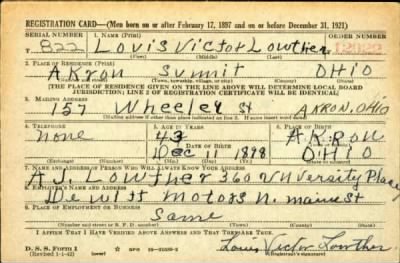 REGISTRATION CARD—(Men born on or after February 17, 1897 and on or before December 31, 1921)
SERIAL NUMBER 1. NAME (Print) ORDER NUMBER
T 822 Lovis Victor Lowther
(First) (Middle) (Last)
2. PLACE OF RESIDENCE (Print)
AKron Summit OHIO
(Town, township, village, or city) (County) (State)
[THE PLACE OF RESIDENCE GIVEN ON THE LINE ABOVE WILL DETERMINE LOCAL BOARD
JURISDICTION; LINE 2 OF REGISTRATION CERTIFICATE WILL BE IDENTICAL]
3. MAILING ADDRESS
157 Wheeler St AKRON, OHIO
(Mailing address if other than place indicated on line 2. If same insert word same)
4. TELEPHONE 5. AGE IN YEARS 6. PLACE OF BIRTH
none 43 AKRON
DATE OF BIRTH
Dec 11 1898 OHIO
(Exchange) (Number) (Mo.) (Day) (Yr.) (State or country)
7. NAME AND ADDRESS OF PERSON WHO WILL ALWAYS KNOW YOUR ADDRESS
A.J. LOWTHER 360 UNversity Place
8. EMPLOYER'S NAME AND ADDRESS
Dewitt Motors N. mainest
9. PLACE OF EMPLOYMENT OR BUSINESS
Same
(Number and street or R. F. D. number) (Town) (County) (State)
I AFFIRM THAT I HAVE VERIFIED ABOVE ANSWERS AND THAT THEY ARE TRUE.
D. S. S. Form 1
(Revised 1-1-42) (over)
Louis Victor Lowther
(Registrant's signature)